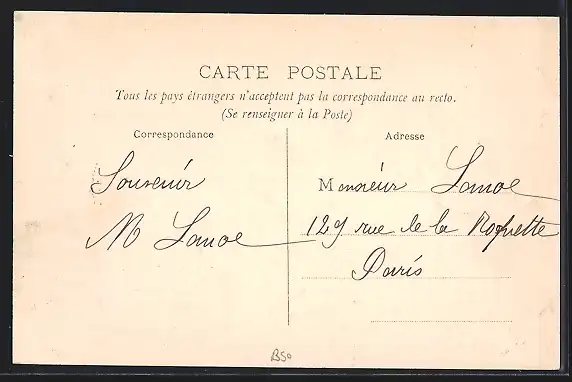 CARTE POSTALE
Tous les pays étrangers n'acceptent pas la correspondance au recto.
(Se renseigner à la Poste)
Correspondance
Souvenir
M Lanoe
Adresse
Monsieur Lanoe
129 rue de la Roquette
Paris
B50